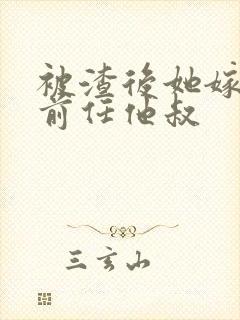 被渣後她嫁
前任他叔
三玄山